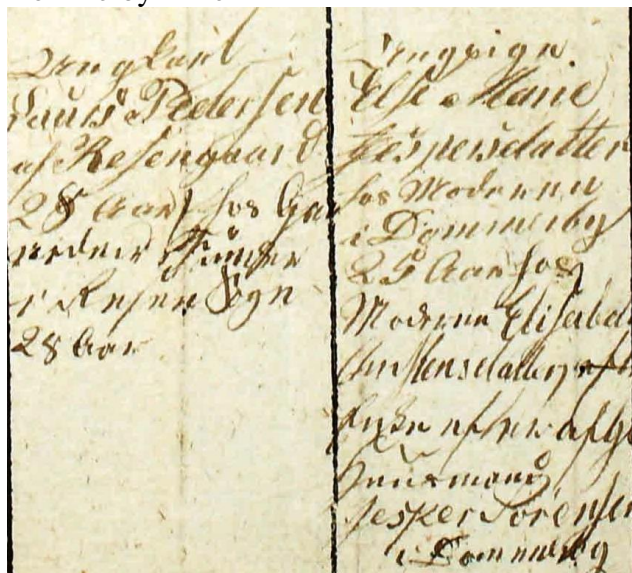 Ungkarl
Laurs Pedersen
af Resengaard
28 Aar hos Gaa
i Resen Sogn
28 Aar
Ungpige
Else Marie
Jespersdatter
hos Moderen
i Dommerby
25 Aar hos
Moderen Elisabet
Christensdatter
Enke efter afg
Huusmand
Jesper Sørensen
i Dommerby